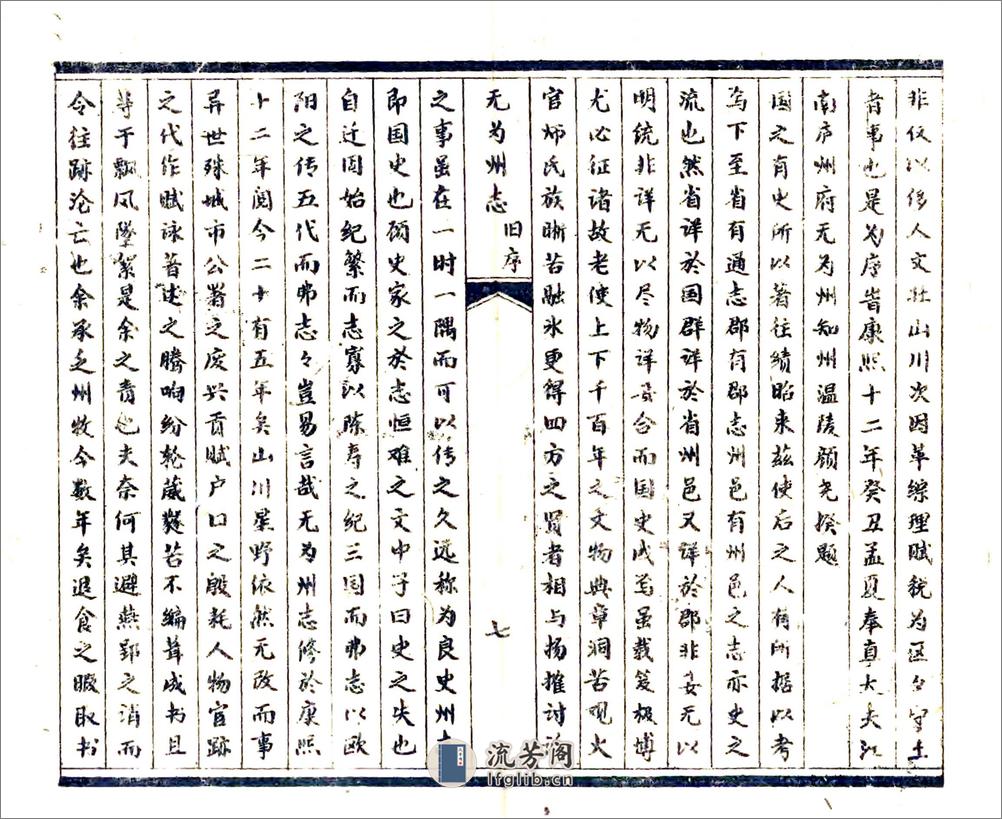 非仅以侈人文壮山川次因革综理赋税为区区守土
者事也是为序皆康熙十二年癸丑孟夏奉直大夫江
南庐州府无为州知州温陵颜尧揆题
国之有史所以著往绩昭来兹使后之人有所据以考
焉下至省有通志郡有郡志州邑有州邑之志亦史之
流也然省详於国群详於省州邑又详於郡非妄无以
明统非详无以尽物详妄合而国史成焉虽载笈极博
尤必征诸故老使上下千百年之文物典章洞若观火
官师氏族晰若融氷更得四方之贤者相与扬搉讨论
无为州志 旧序
七
之事虽在一时一隅而可以传之久远称为良史州志
即国史也顾史家之於志恒难之文中子曰史之失也
自迁固始纪繁而志寡以陈寿之纪三国而弗志以欧
阳之传五代而弗志々岂易言哉无为州志修於康熙
十二年阅今二十有五年矣山川星野依然无改而事
异世殊城市公署之废兴贡赋户口之殷耗人物官跡
之代作赋咏著述之腾响纷轮葳蕤若不编葺成书且
等于飘风坠絮是余之责也夫奈何其避燕郢之消而
令往跡沦亡也余承乏州牧今数年矣退食之暇取书
流芳阁
lfglib.cn